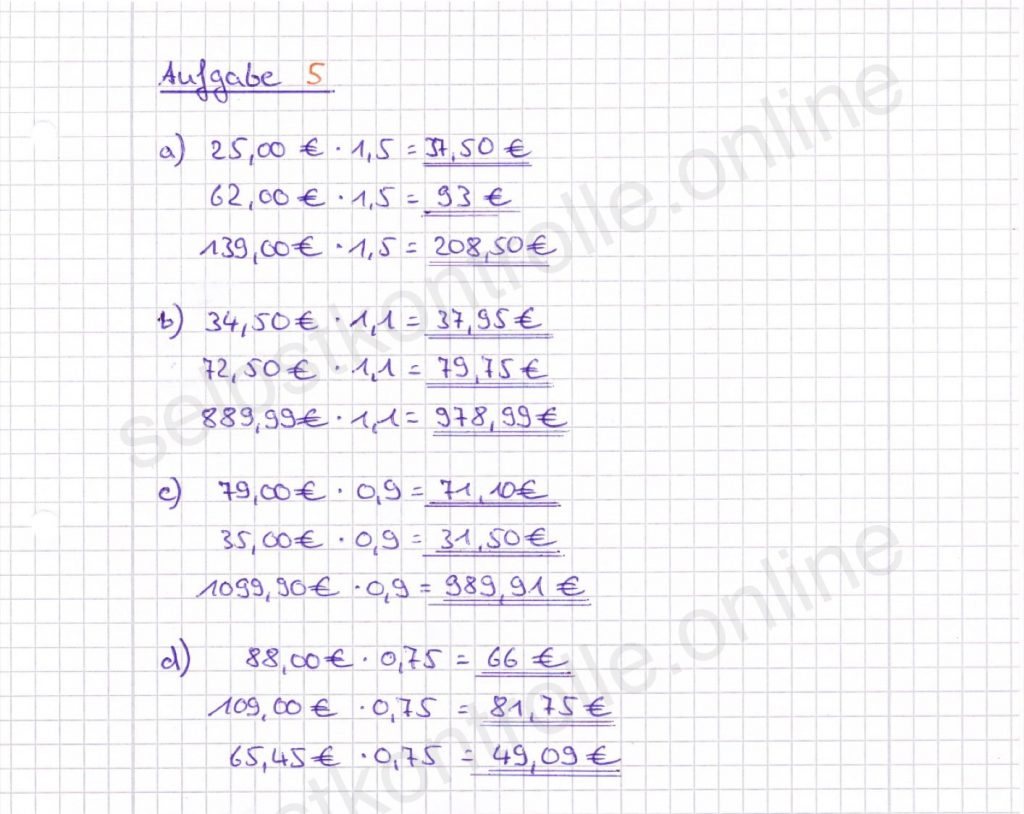 Aufgabe 5
a) 25,00 € · 1,5 = 37,50 €
62,00 € · 1,5 = 93 €
139,00 € · 1,5 = 208,50 €
b) 34,50 € · 1,1 = 37,95 €
72,50 € · 1,1 = 79,75 €
889,99 € · 1,1 = 978,99 €
c) 79,00 € · 0,9 = 71,10 €
35,00 € · 0,9 = 31,50 €
1099,90 € · 0,9 = 989,91 €
d) 88,00 € · 0,75 = 66 €
109,00 € · 0,75 = 81,75 €
65,45 € · 0,75 = 49,09 €
selbstkontrolle.online
selbstkontrolle.online